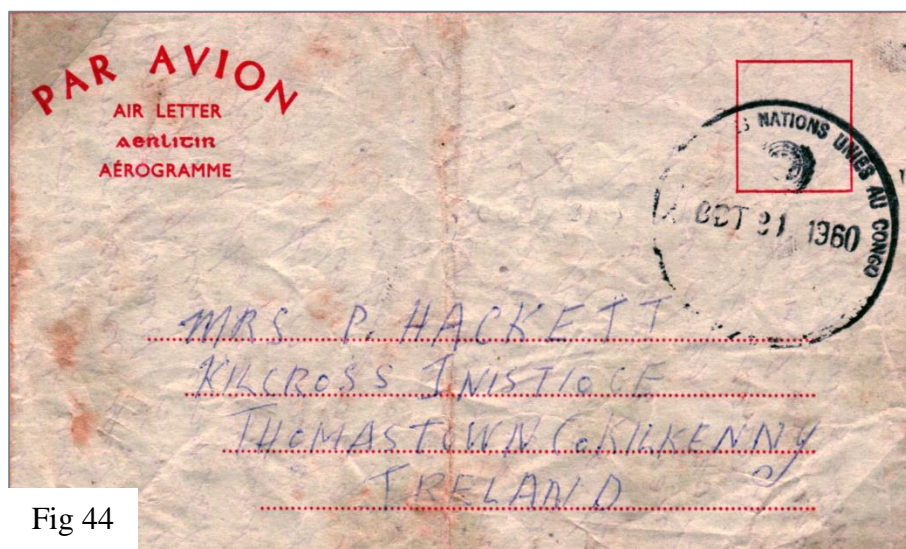 PAR AVION
AIR LETTER
aerlitir
AÉROGRAMME
NATIONS UNIES AU CONGO
OCT 1960
MRS P. HACKETT
KILCROSS INISTIOGE
THOMASTOWN Co KILKENNY
IRELAND
Fig 44